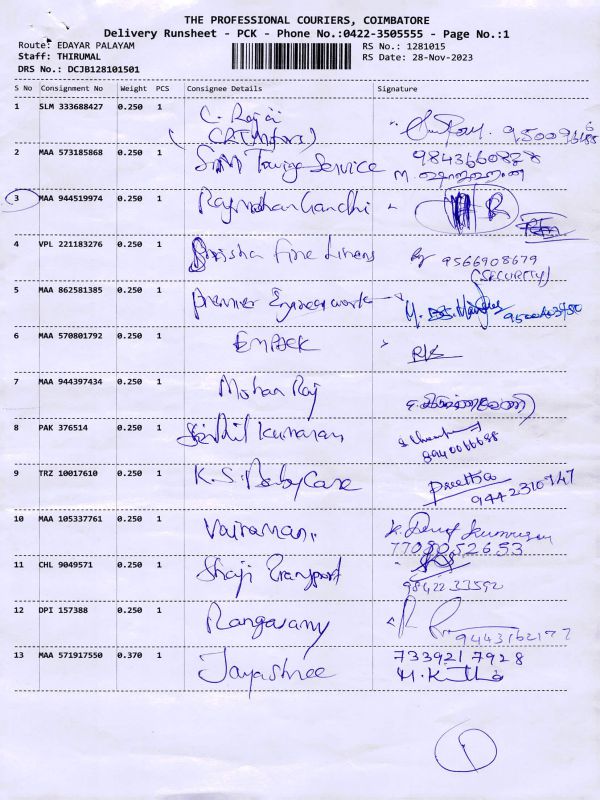 THE PROFESSIONAL COURIERS, COIMBATORE
Delivery Runsheet - PCK - Phone No.:0422-3505555 - Page No.:1
Route: EDAYAR PALAYAM
RS No.: 1281015
Staff: THIRUMAL
RS Date: 28-Nov-2023
DRS No.: DCJB128101501
S No Consignment No Weight PCS Consignee Details Signature
1 SLM 333688427 0.250 1 C. Rajai
2 MAA 573185868 0.250 1 SVM Towing Service 9843660828
3 MAA 944519974 0.250 1 Rajmohan Gandhi
4 VPL 221183276 0.250 1 Fine Linens 9566908679
(SECURITY)
5 MAA 862581385 0.250 1 Premier
6 MAA 570801792 0.250 1 RK
7 MAA 944397434 0.250 1 Mohan Raj
8 PAK 376514 0.250 1 Kumaran
9 TRZ 10017610 0.250 1 K.S. Baby Care Preetha
9442310947
10 MAA 105337761 0.250 1 Vairamani
11 CHL 9049571 0.250 1 Shaji Transport
9842233592
12 DPI 157388 0.250 1 Rangasamy
13 MAA 571917550 0.370 1 Jayashree 7339217928
1